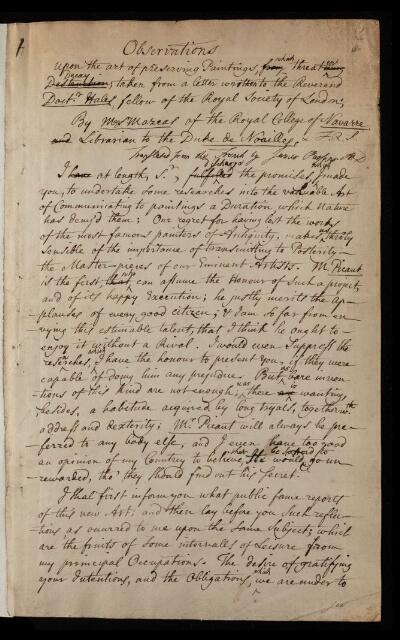 1
Observations
upon the art of preserving Paintings, from which threat'ning
Decay
Destruction; taken from a letter wrote to the Reverend
Doctr. Hales, fellow of the Royal Society of London,
By Mr. Mazeas of the Royal College of Navarre
and Librarian to the Duke de Noailles, F.R.S.
translated from the French by James Parsons M.D.
discharge
I have at length, Sr., fulfilled the promises, I made
you, to undertake some researches into the valuable Art
of Communicating to paintings a Duration which Nature
has deny'd them; Our regret for having lost the works
of the most famous painters of Antiquity, makes us justly
sensible of the importance of transmitting to Posterity
the Master-pieces of our Eminent Artists. Mr. Picaut
is the first, that can assume the Honour of such a project,
and of its happy Execution; he justly merits the ap-
plauses of every good citizen; & I am so far from en-
vying this estimable talent, that I think he ought to
enjoy it without a Rival. I would even suppress the
researches, which I have the honour to present you, if they were
capable of doing him any prejudice. But, as bare inven-
tions of this kind are not enough, there is wanting
besides, a habitude acquired by long tryals, together wth
address and dexterity; Mr. Picaut will always be pre-
ferred to any body else, and I even have too good
an opinion of my Country to believe, she would go un
rewarded, tho' they should find out his Secret.
I shall first inform you what public fame reports
of this new Art; and then lay before you such reflec-
tions as occurred to me upon the Same Subject; which
are the fruits of Some intervalles of Leisure from
my principal Occupations. The desire of gratifying
your Intentions, and the Obligations, which we are under to